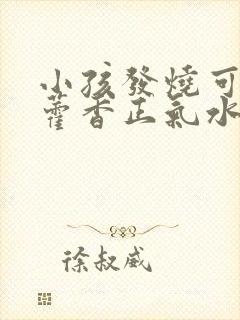 小孩發燒可
藿香正氣水
徐叔威